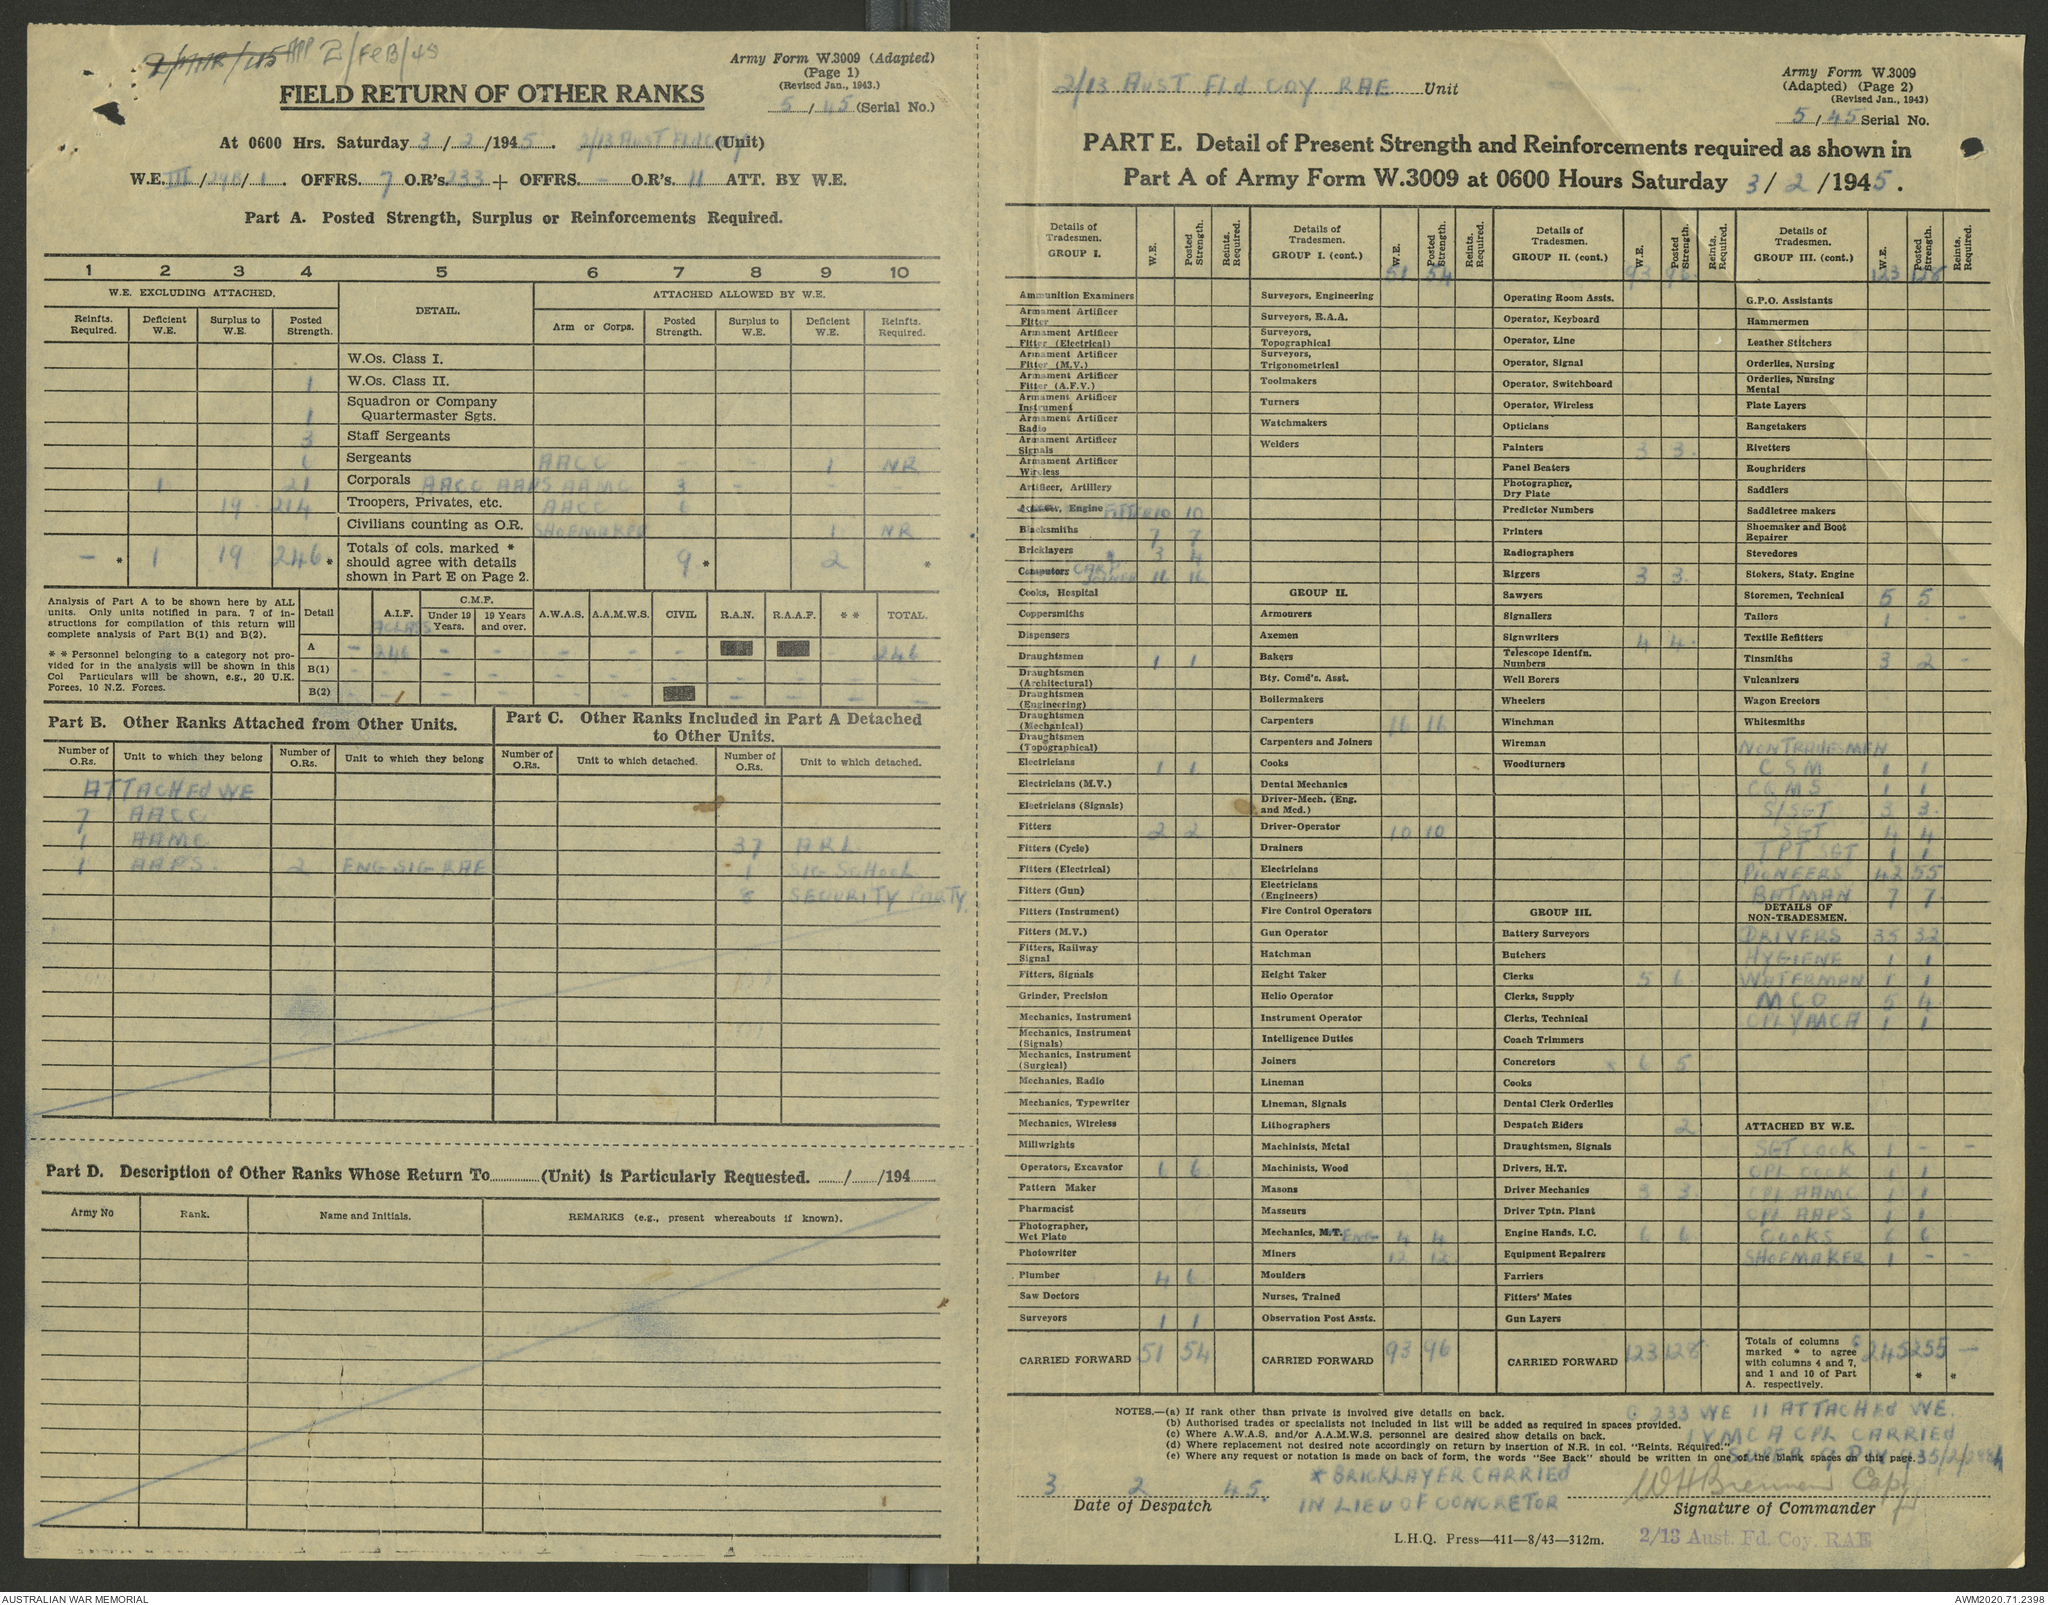 2/FEB/45
Army Form W.3009 (Adapted)
(Page 1)
(Revised Jan., 1943.)
FIELD RETURN OF OTHER RANKS
5/45 (Serial No.)
At 0600 Hrs. Saturday 3/2/1945. 2/13 Aust Fld Coy (Unit)
W.E. III/24B/1. OFFRS. 7 O.R's. 233 + OFFRS. - O.R's. 11 ATT. BY W.E.
Part A. Posted Strength, Surplus or Reinforcements Required.
1 2 3 4 5 6 7 8 9 10
W.E. EXCLUDING ATTACHED. DETAIL. ATTACHED ALLOWED BY W.E.
Reinfts. Required. Deficient W.E. Surplus to W.E. Posted Strength. Arm or Corps. Posted Strength. Surplus to W.E. Deficient W.E. Reinfts. Required.
W.Os. Class I.
1 W.Os. Class II.
1 Squadron or Company Quartermaster Sgts.
3 Staff Sergeants
6 Sergeants AACC - - 1 NR
1 21 Corporals AACC AAPS AAMC 3 - - -
19 214 Troopers, Privates, etc. AACC 6
Civilians counting as O.R. SHOEMAKER 1 NR
- * 1 19 246 * Totals of cols. marked * should agree with details shown in Part E on Page 2. 9 * 2 *
Analysis of Part A to be shown here by ALL units. Only units notified in para. 7 of instructions for compilation of this return will complete analysis of Part B(1) and B(2).
* * Personnel belonging to a category not provided for in the analysis will be shown in this Col Particulars will be shown, e.g., 20 U.K. Forces, 10 N.Z. Forces.
Detail A.I.F. C.M.F. Under 19 Years. 19 Years and over. A.W.A.S. A.A.M.W.S. CIVIL R.A.N. R.A.A.F. * * TOTAL.
A CLASS
A - 246 - - - - - 246
B(1) - - - - - -
B(2) - - - - - -
Part B. Other Ranks Attached from Other Units.
Part C. Other Ranks Included in Part A Detached to Other Units.
Number of O.Rs. Unit to which they belong Number of O.Rs. Unit to which they belong Number of O.Rs. Unit to which detached. Number of O.Rs. Unit to which detached.
ATTACHED WE
7 AACC
1 AAMC 37 ARL
1 AAPS. 2 ENG SIG RAE 1 SIG SCHOOL
8 SECURITY PARTY
Part D. Description of Other Ranks Whose Return To (Unit) is Particularly Requested. / /194
Army No Rank. Name and Initials. REMARKS (e.g., present whereabouts if known).
2/13 AUST Fld COY RAE Unit
Army Form W.3009
(Adapted) (Page 2)
(Revised Jan., 1943)
5/45 Serial No.
PART E. Detail of Present Strength and Reinforcements required as shown in
Part A of Army Form W.3009 at 0600 Hours Saturday 3/2/1945.
Details of Tradesmen. GROUP I. W.E. Posted Strength. Reints. Required.
Ammunition Examiners
Armament Artificer Fitter
Armament Artificer Fitter (Electrical)
Armament Artificer Fitter (M.V.)
Armament Artificer Fitter (A.F.V.)
Armament Artificer Instrument
Armament Artificer Radio
Armament Artificer Signals
Armament Artificer Wireless
Artificer, Artillery
Artificer, Engine FITTER 10 10
Blacksmiths 7 7
Bricklayers * 3 4
Computers CARP JOINER 16 16
Cooks, Hospital
Coppersmiths
Dispensers
Draughtsmen 1 1
Draughtsmen (Architectural)
Draughtsmen (Engineering)
Draughtsmen (Mechanical)
Draughtsmen (Topographical)
Electricians 1 1
Electricians (M.V.)
Electricians (Signals)
Fitters 2 2
Fitters (Cycle)
Fitters (Electrical)
Fitters (Gun)
Fitters (Instrument)
Fitters (M.V.)
Fitters, Railway Signal
Fitters, Signals
Grinder, Precision
Mechanics, Instrument
Mechanics, Instrument (Signals)
Mechanics, Instrument (Surgical)
Mechanics, Radio
Mechanics, Typewriter
Mechanics, Wireless
Millwrights
Operators, Excavator 6 6
Pattern Maker
Pharmacist
Photographer, Wet Plate
Photowriter
Plumber 4 6
Saw Doctors
Surveyors 1 1
CARRIED FORWARD 51 54
Details of Tradesmen. GROUP I. (cont.) W.E. Posted Strength. Reints. Required.
51 54
Surveyors, Engineering
Surveyors, R.A.A.
Surveyors, Topographical
Surveyors, Trigonometrical
Toolmakers
Turners
Watchmakers
Welders
GROUP II.
Armourers
Axemen
Bakers
Bty. Comd's. Asst.
Boilermakers
Carpenters 16 16
Carpenters and Joiners
Cooks
Dental Mechanics
Driver-Mech. (Eng. and Med.)
Driver-Operator 10 10
Drainers
Electricians
Electricians (Engineers)
Fire Control Operators
Gun Operator
Hatchman
Height Taker
Helio Operator
Instrument Operator
Intelligence Duties
Joiners
Lineman
Lineman, Signals
Lithographers
Machinists, Metal
Machinists, Wood
Masons
Masseurs
Mechanics, M.T. ENG 4 4
Miners 12 12
Moulders
Nurses, Trained
Observation Post Assts.
CARRIED FORWARD 93 96
Details of Tradesmen. GROUP II. (cont.) W.E. Posted Strength. Reints. Required.
93 96
Operating Room Assts.
Operator, Keyboard
Operator, Line
Operator, Signal
Operator, Switchboard
Operator, Wireless
Opticians
Painters 3 3
Panel Beaters
Photographer, Dry Plate
Predictor Numbers
Printers
Radiographers
Riggers 3 3
Sawyers
Signallers
Signwriters 4 4
Telescope Identfn. Numbers
Well Borers
Wheelers
Winchman
Wireman
Woodturners
GROUP III.
Battery Surveyors
Butchers
Clerks 5 6
Clerks, Supply
Clerks, Technical
Coach Trimmers
Concretors * 6 5
Cooks
Dental Clerk Orderlies
Despatch Riders 2
Draughtsmen, Signals
Drivers, H.T.
Driver Mechanics 3 3
Driver Tptn. Plant
Engine Hands, I.C. 6 6
Equipment Repairers
Farriers
Fitters' Mates
Gun Layers
CARRIED FORWARD 123 128
Details of Tradesmen. GROUP III. (cont.) W.E. Posted Strength. Reints. Required.
123 128
G.P.O. Assistants
Hammermen
Leather Stitchers
Orderlies, Nursing
Orderlies, Nursing Mental
Plate Layers
Rangetakers
Rivetters
Roughriders
Saddlers
Saddletree makers
Shoemaker and Boot Repairer
Stevedores
Stokers, Staty. Engine
Storemen, Technical 5 5
Tailors 1 - -
Textile Refitters
Tinsmiths 3 2 -
Vulcanizers
Wagon Erectors
Whitesmiths
NONTRADESMEN
CSM 1 1
CQMS 1 1
S/SGT 3 3
SGT 4 4
TPT SGT 1 1
PIONEERS 42 55
BATMAN 7 7
DETAILS OF NON-TRADESMEN.
DRIVERS 35 32
HYGIENE 1 1
WATERMAN 1 1
MCO 5 4
CPL YMCA 1 1
ATTACHED BY W.E.
SGT COOK 1 - -
CPL COOK 1 1
CPL AAMC 1 1
CPL AAPS 1 1
COOKS 6 6
SHOEMAKER 1 - -
Totals of columns marked * to agree with columns 4 and 7, and 1 and 10 of Part A. respectively. 245 255 - * *
NOTES.—(a) If rank other than private is involved give details on back.
(b) Authorised trades or specialists not included in list will be added as required in spaces provided.
(c) Where A.W.A.S. and/or A.A.M.W.S. personnel are desired show details on back.
(d) Where replacement not desired note accordingly on return by insertion of N.R. in col. "Reints. Required."
(e) Where any request or notation is made on back of form, the words "See Back" should be written in one of the blank spaces on this page.
233 WE 11 ATTACHED WE.
1 YMCA CPL CARRIED
3 2 45.
Date of Despatch
* BRICKLAYER CARRIED
IN LIEU OF CONCRETOR
WH Brennan Capt
Signature of Commander
L.H.Q. Press—411—8/43—312m.
2/13 Aust. Fd. Coy. R.A.E.
AUSTRALIAN WAR MEMORIAL
AWM2020.71.2398